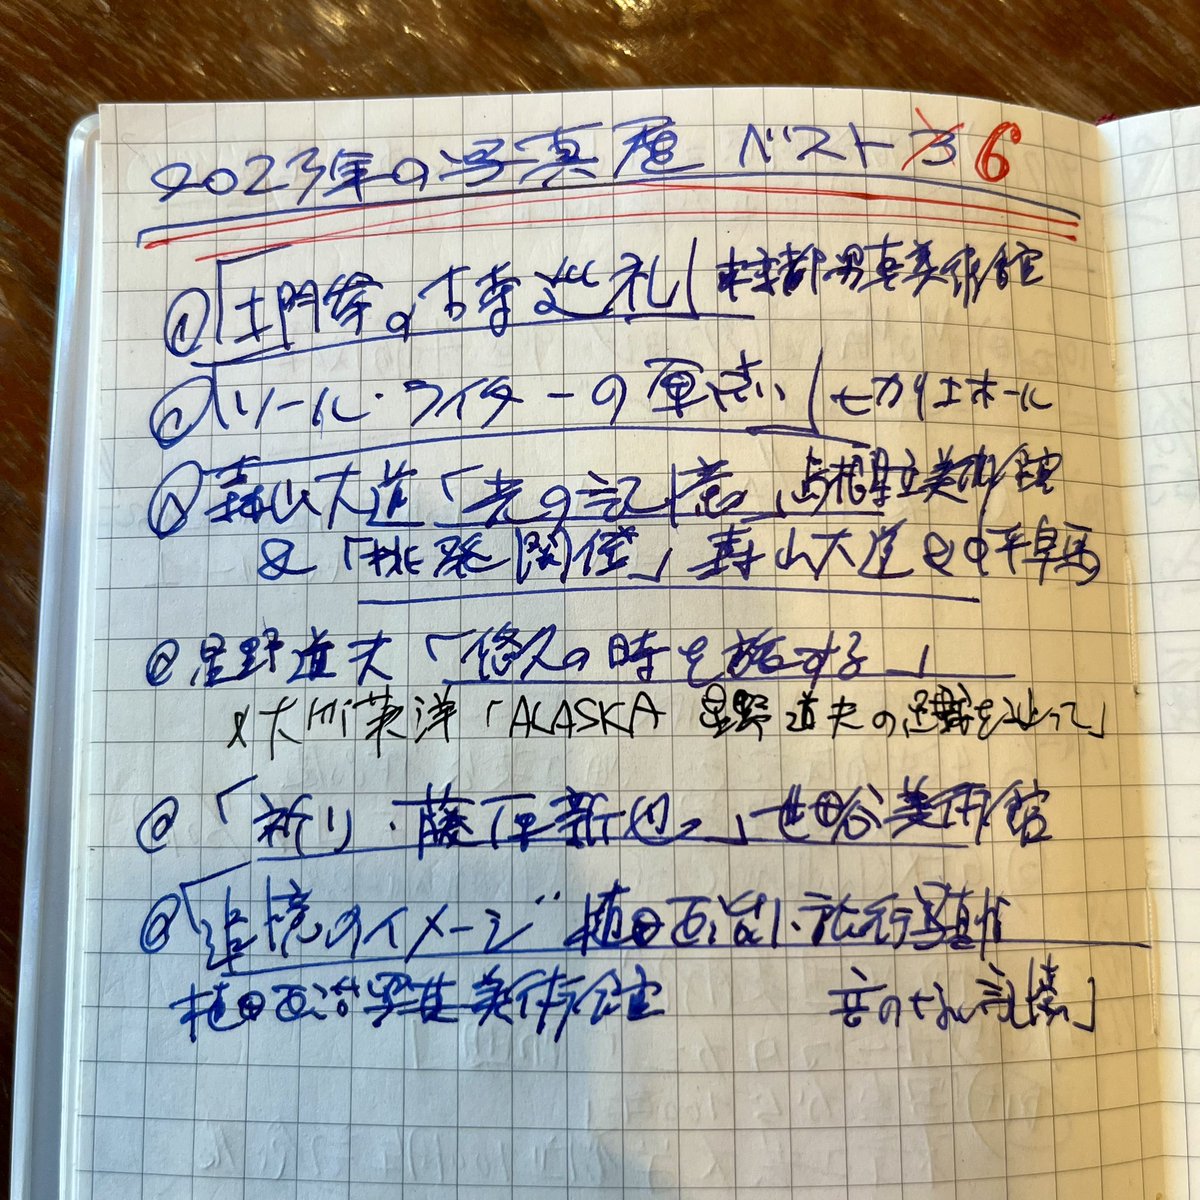 2023年の写真展 ベスト3 6
① 「土門拳の古寺巡礼」 東京都写真美術館
② 「ソール・ライターの原点」 ヒカリエホール
③ 森山大道「光の記憶」島根県立美術館
& 「挑発関係」森山大道&中平卓馬
@ 星野道夫「悠久の時を旅する」
& 大竹英洋「ALASKA 星野道夫の足跡を辿って」
@ 「祈り・藤原新也」世田谷美術館
@ 「追憶のイメージ 植田正治・旅行写真帖
植田正治写真美術館 音のない記憶」